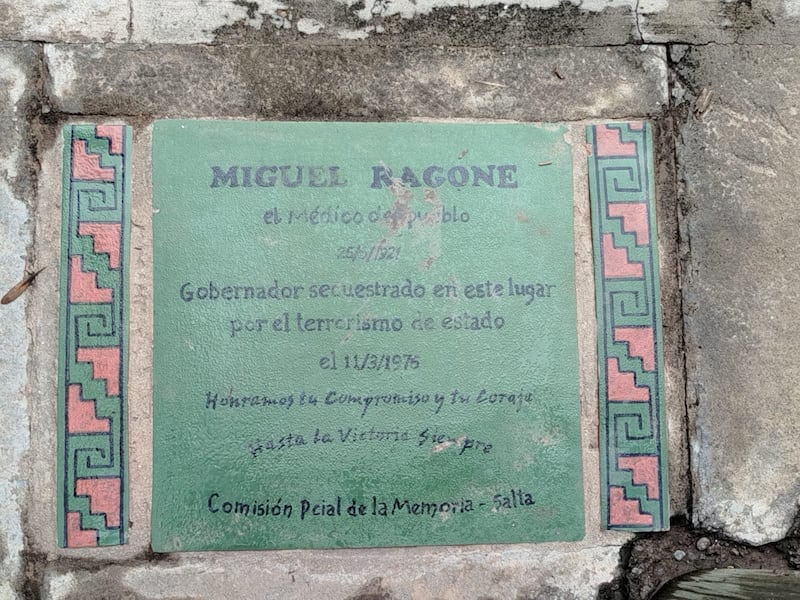 MIGUEL RAGONE
el Médico del pueblo
Gobernador secuestrado en este lugar
por el terrorismo de estado
el 11/3/1976
Honramos tu Compromiso y tu Coraje
Hasta la Victoria Siempre
Comisión Pcial de la Memoria - Salta